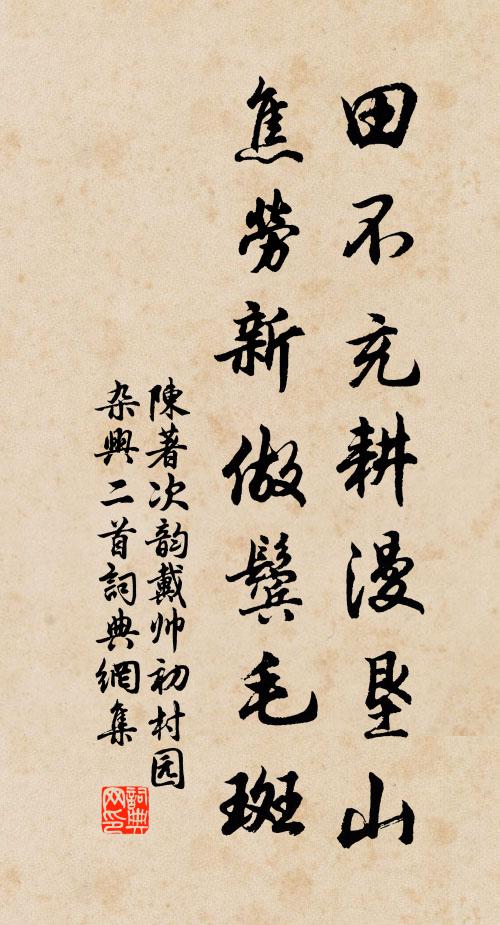 田不充耕漫垦山
焦勞新做鬓毛斑
陳著次韵戴帅初村园
杂興二首詞典網集
詞典网印